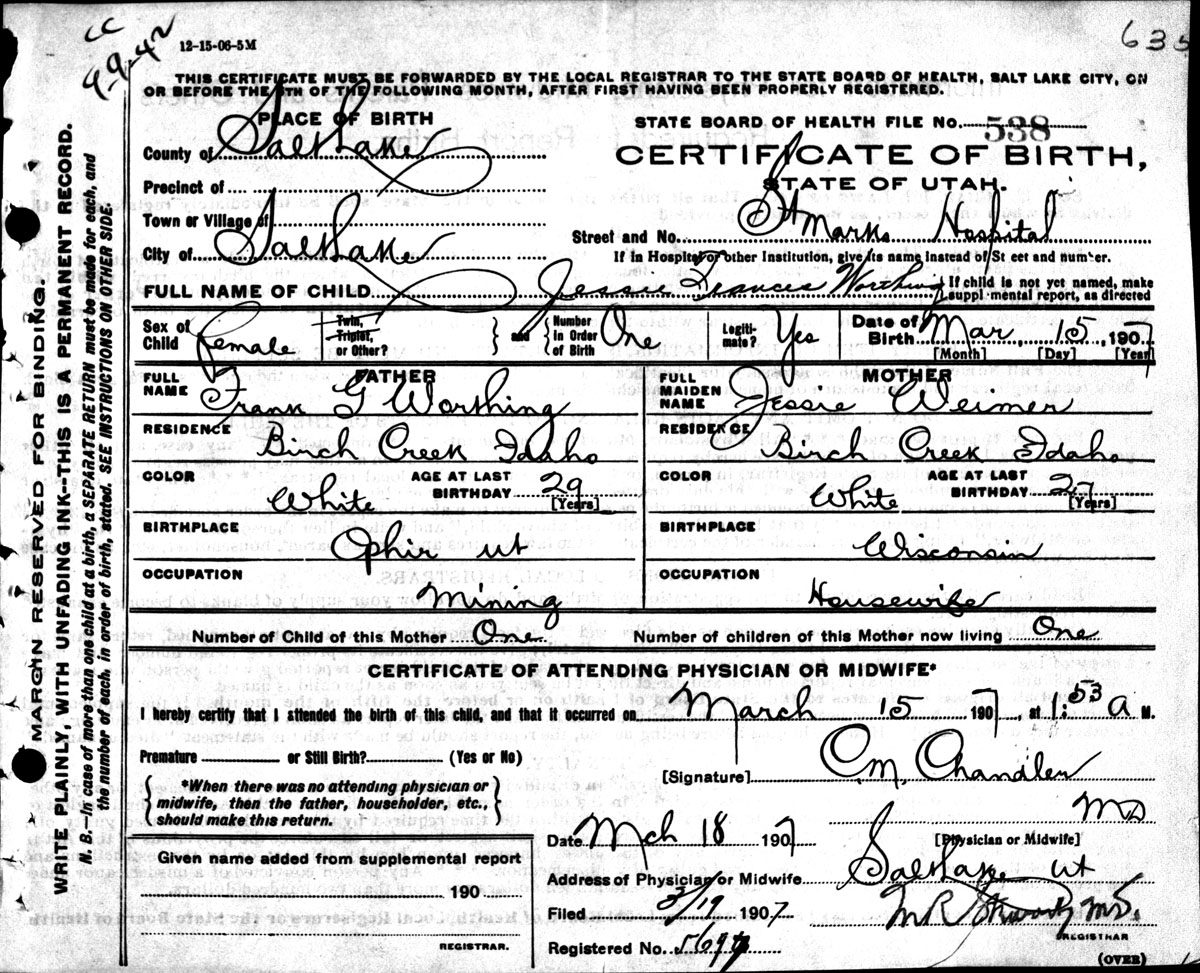 CC
9-9-42
12-15-06-5M
635
THIS CERTIFICATE MUST BE FORWARDED BY THE LOCAL REGISTRAR TO THE STATE BOARD OF HEALTH, SALT LAKE CITY, ON
OR BEFORE THE 5TH OF THE FOLLOWING MONTH, AFTER FIRST HAVING BEEN PROPERLY REGISTERED.
PLACE OF BIRTH
County of Salt Lake
Precinct of
Town or Village of
City of Salt Lake
STATE BOARD OF HEALTH FILE No. 538
CERTIFICATE OF BIRTH,
STATE OF UTAH.
Street and No. St Marks Hospital
If in Hospital or other Institution, give its name instead of St eet and number.
FULL NAME OF CHILD Jessie Frances Worthing
If child is not yet named, make
suppl mental report, as directed
Sex of Child Female
Twin, Triplet, or Other?
and
Number in Order of Birth One
Legiti-mate? Yes
Date of Birth Mar 15, 1907
[Month] [Day] [Year]
FATHER
FULL NAME Frank G Worthing
RESIDENCE Birch Creek Idaho
COLOR White AGE AT LAST BIRTHDAY 29 [Years]
BIRTHPLACE Ophir ut
OCCUPATION Mining
MOTHER
FULL MAIDEN NAME Jessie Weimer
RESIDENCE Birch Creek Idaho
COLOR White AGE AT LAST BIRTHDAY 27 [Years]
BIRTHPLACE Wisconsin
OCCUPATION Housewife
Number of Child of this Mother One Number of children of this Mother now living One
CERTIFICATE OF ATTENDING PHYSICIAN OR MIDWIFE*
I hereby certify that I attended the birth of this child, and that it occurred on March 15 1907, at 1:53 a M.
Premature or Still Birth? (Yes or No)
*When there was no attending physician or
midwife, then the father, householder, etc.,
should make this return.
[Signature] C.M. Chandler
MD
[Physician or Midwife]
Date Mch 18 1907
Address of Physician or Midwife Salt Lake ut
Filed 3/19 1907
Registered No.
REGISTRAR
(OVER)
Given name added from supplemental report
190
REGISTRAR.
MARGIN RESERVED FOR BINDING.
WRITE PLAINLY, WITH UNFADING INK--THIS IS A PERMANENT RECORD.
N. B.—In case of more than one child at a birth, a SEPARATE RETURN must be made for each, and
the number of each, in order of birth, stated. SEE INSTRUCTIONS ON OTHER SIDE.